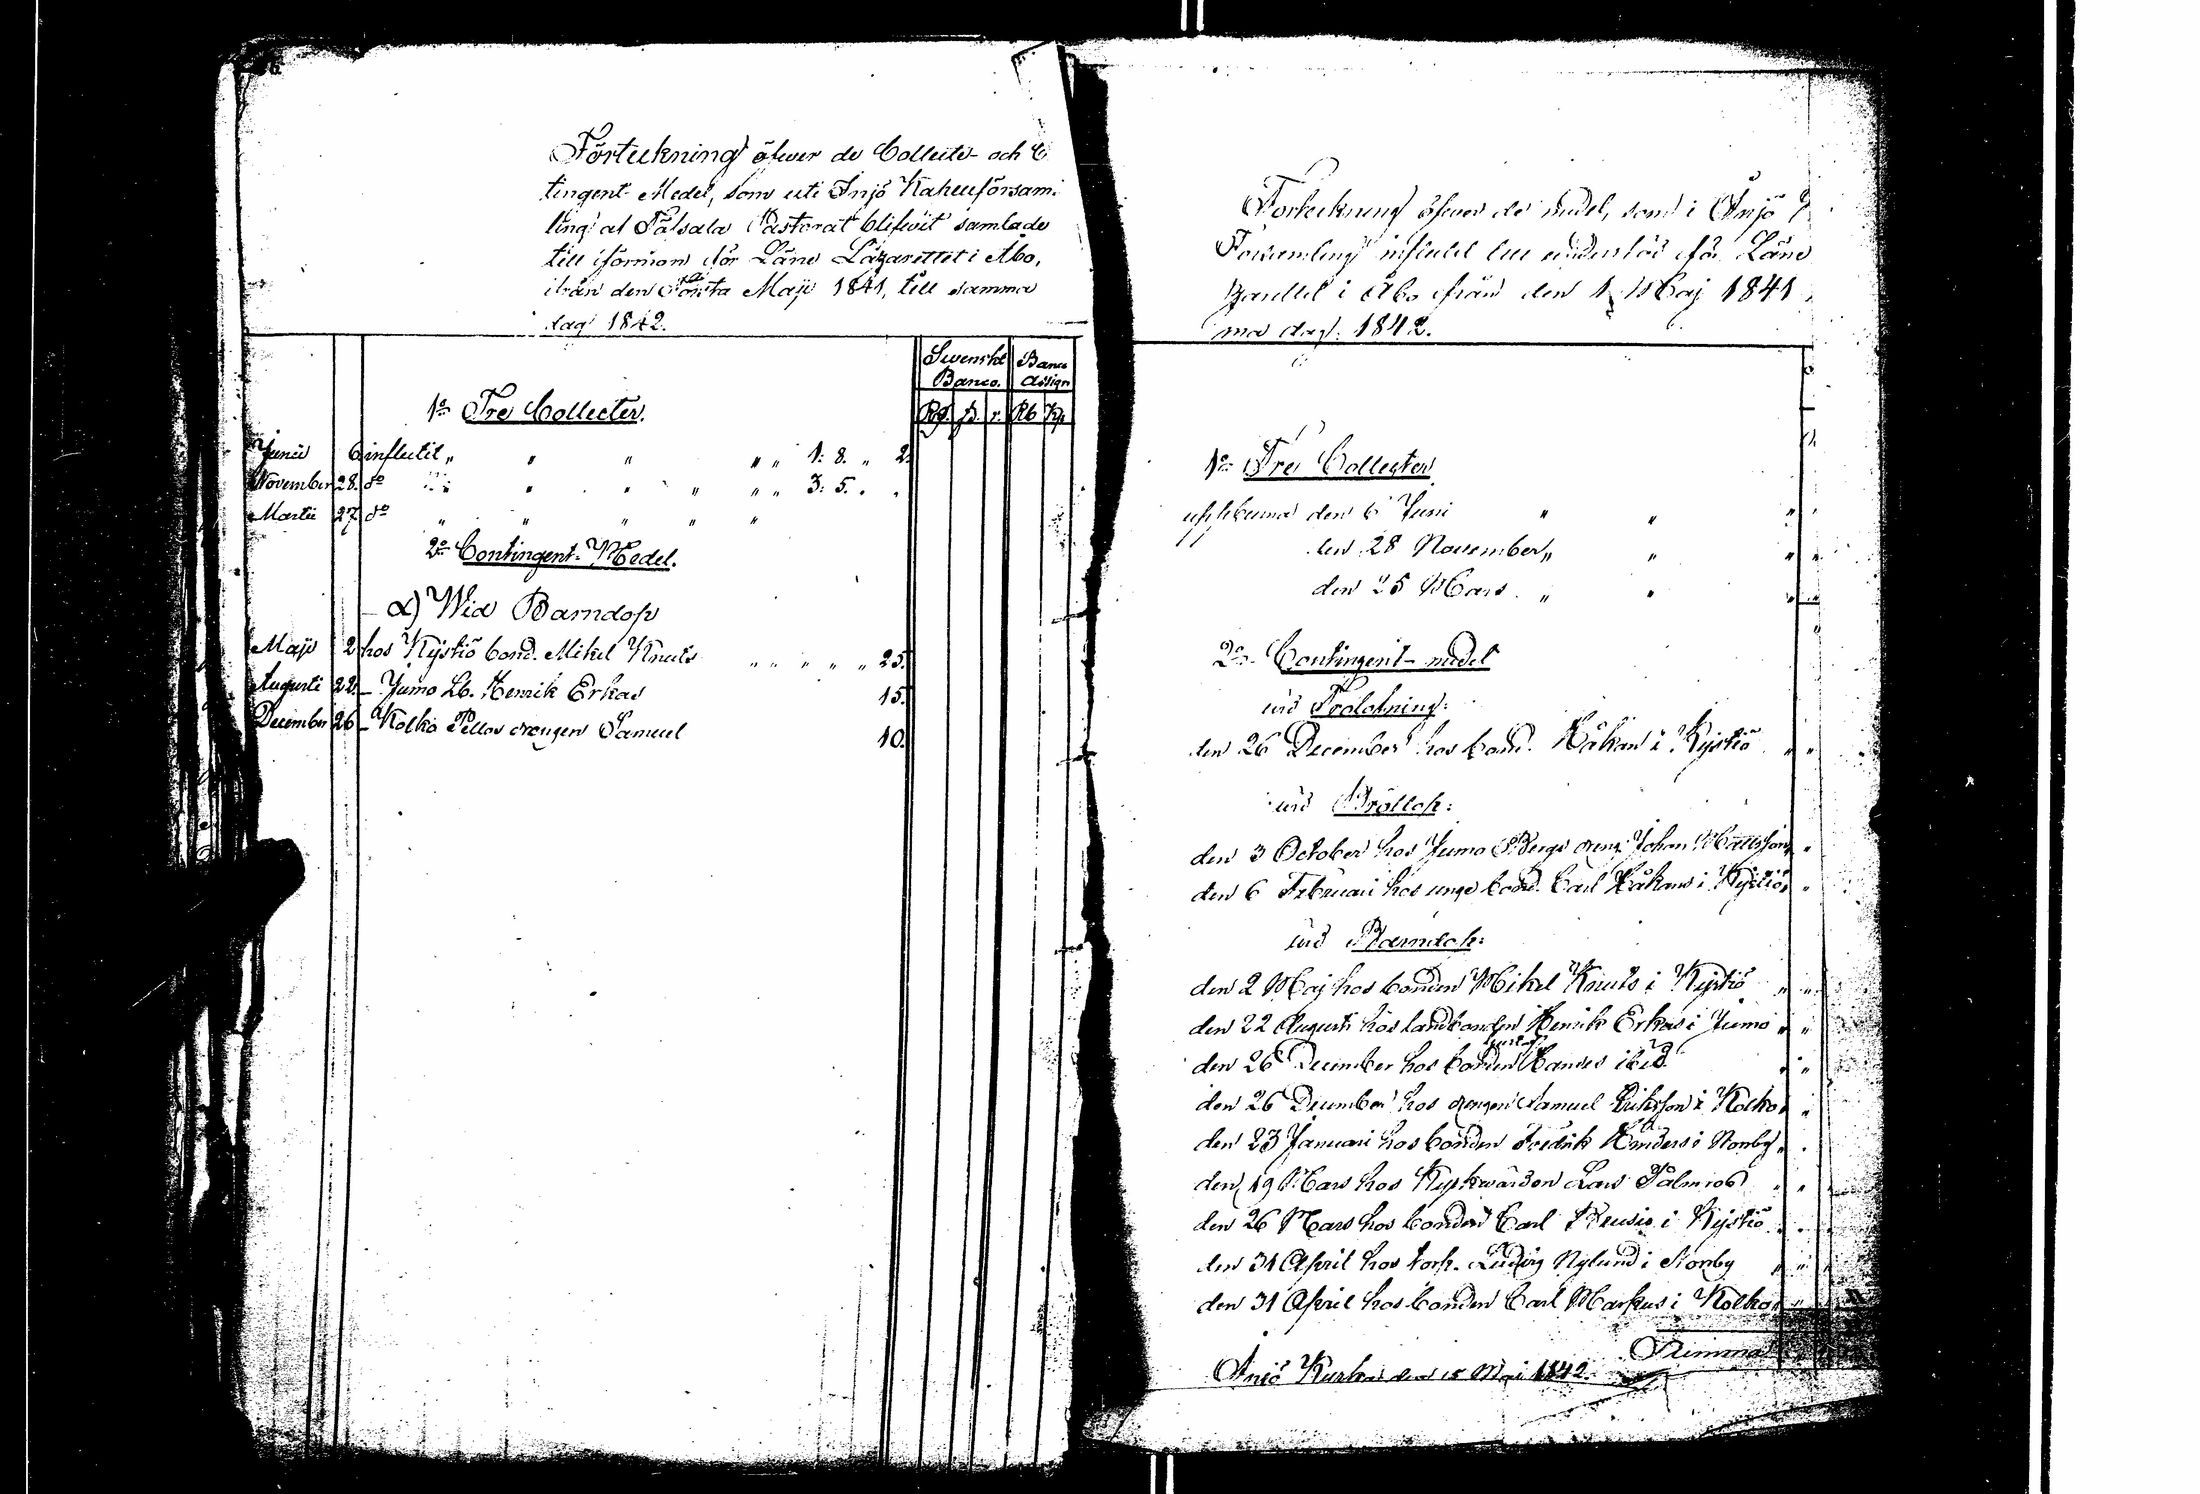 Förteckning öfwer de Collecte- och C
tingent Medel, som uti Injö Kapellförsam-
ling af Töfsala Pastorat blifwit samlade
till förmon för Läns Lazarettet i Åbo,
ifrån den Första Maji 1841, till samma
dag 1842.
Swenskt Banco. Banco Assign
Rg. ß. r. Rb Kp
1o Tre Collecter.
Junii 6 influtit " " " " " 1: 8. " 2.
November 28. do " " " " " " 3: 5. " "
Martii 27 do " " " " "
2o Contingent-Medel.
a) Wid Barndop
Maji 2 hos Kijstiö bond. Mikel Knuts " " " " " 25.
Augusti 22. – Jumo Lb. Henrik Erkas 15.
December 26 – Kolko Pellas drengen Samuel 10.
Förteckning öfwer de medel, som i Injö
Församling influtit till understöd för Läns
zarettet i Åbo ifrån den 1 Maj 1841
ma dag. 1842.
1o Tre Collecter
uppburna den 6 Juni " " "
den 28 November " " "
den 25 Mars " " "
2o Contingent-medel
wid Trolofning:
den 26 December hos bond. Håkan i Kijstiö " "
wid Bröllop:
den 3 October hos Jumo Bergs dreng Johan Mattsson "
den 6 Februari hos unge bond. Carl Håkans i Kijstiö "
wid Barndop:
den 2 Maj hos bonden Mikel Knuts i Kijstiö " "
den 22 Augusti hos landbonden Henrik Erkas i Jumo " "
den 26 December hos bonden Hanses ibid " "
den 26 December hos drengen Samuel Eriksson i Kolko "
den 23 Januari hos bonden Fredrik Anders i Norrby "
den 19 Mars hos Kyrkwärden Lars Palmros " "
den 26 Mars hos bonden Carl i Kijstiö " "
den 31 April hos torp. Ludvig Nylund i Norrby " "
den 31 April hos bonden Carl Markus i Kolko "
Summa
Injö Kyrka den 15 Maj 1842.